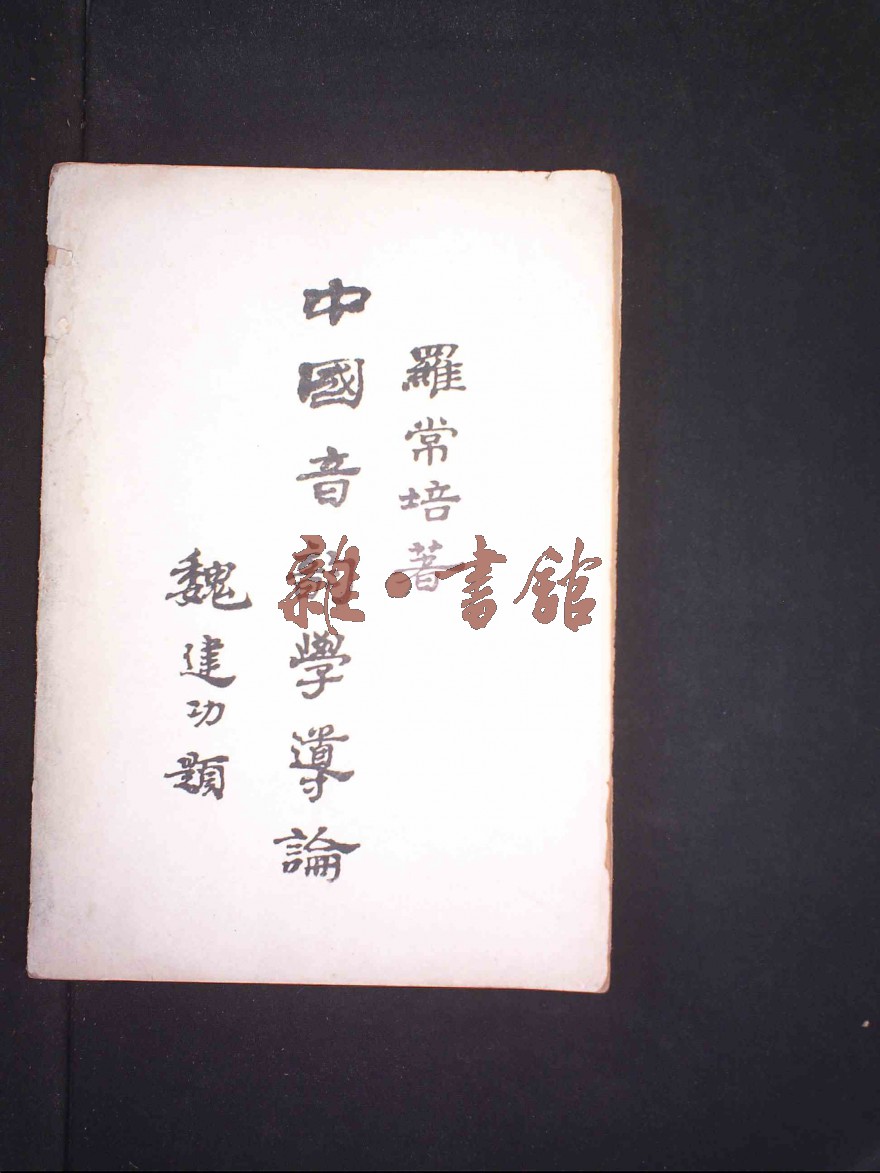 羅常培著
中國音學導論
魏建功題
雜·書館